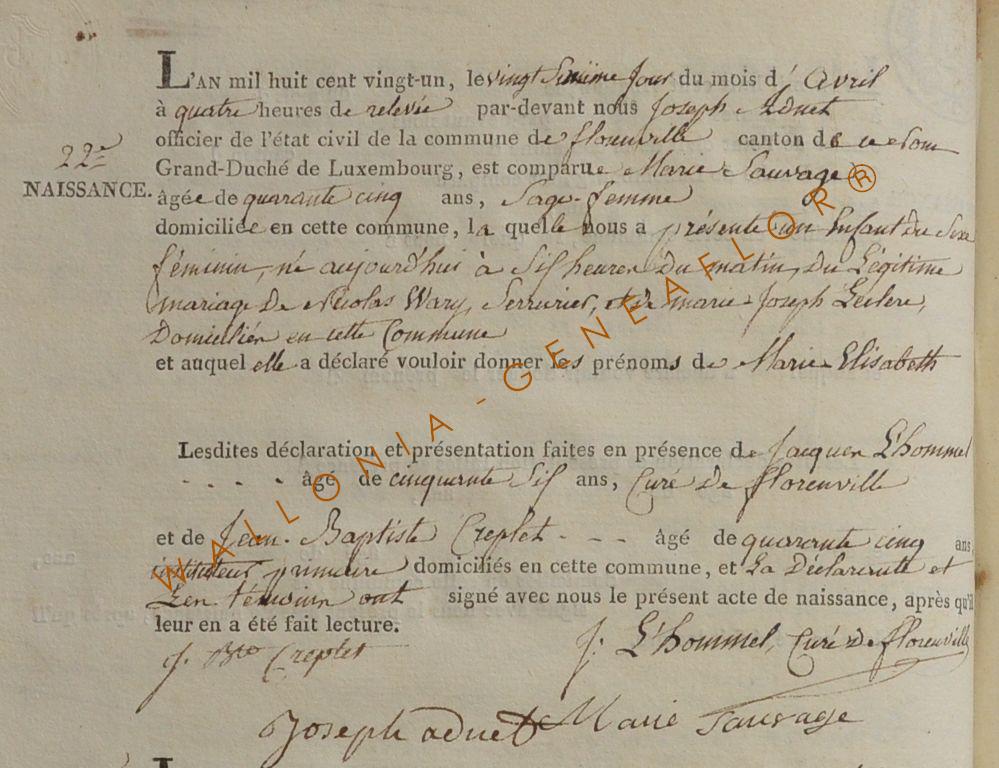 L'AN mil huit cent vingt-un, le vingt Sixième Jour du mois d' Avril
à quatre heures de relevée par-devant nous Joseph Adnet
officier de l'état civil de la commune de florenville canton de ce Nom
22e
Grand-Duché de Luxembourg, est comparue Marie Sauvage
NAISSANCE.
âgée de quarante cinq ans, Sage-femme
domiciliée en cette commune, la quelle nous a présenté un Enfant du Sexe
féminin, né aujourd'hui à Six heures du matin, du Légitime
mariage de Nicolas Wary, Serrurier, et de marie-Joseph Leclere,
Domiciliés en cette Commune
et auquel elle a déclaré vouloir donner les prénoms de Marie Elisabeth
Lesdites déclaration et présentation faites en présence de Jacques L'hommel
- - - - âgé de cinquante Six ans, Curé de florenville
et de Jean-Baptiste Creplet - - - âgé de quarante cinq ans,
instituteur primaire domiciliés en cette commune, et La Déclarante et
Les témoins ont signé avec nous le présent acte de naissance, après qu'il
leur en a été fait lecture.
J. Bte Creplet
J. L'hommel, Curé de florenville
Joseph adnet Marie Sauvage
WALLONIA-GENEAFLOR®